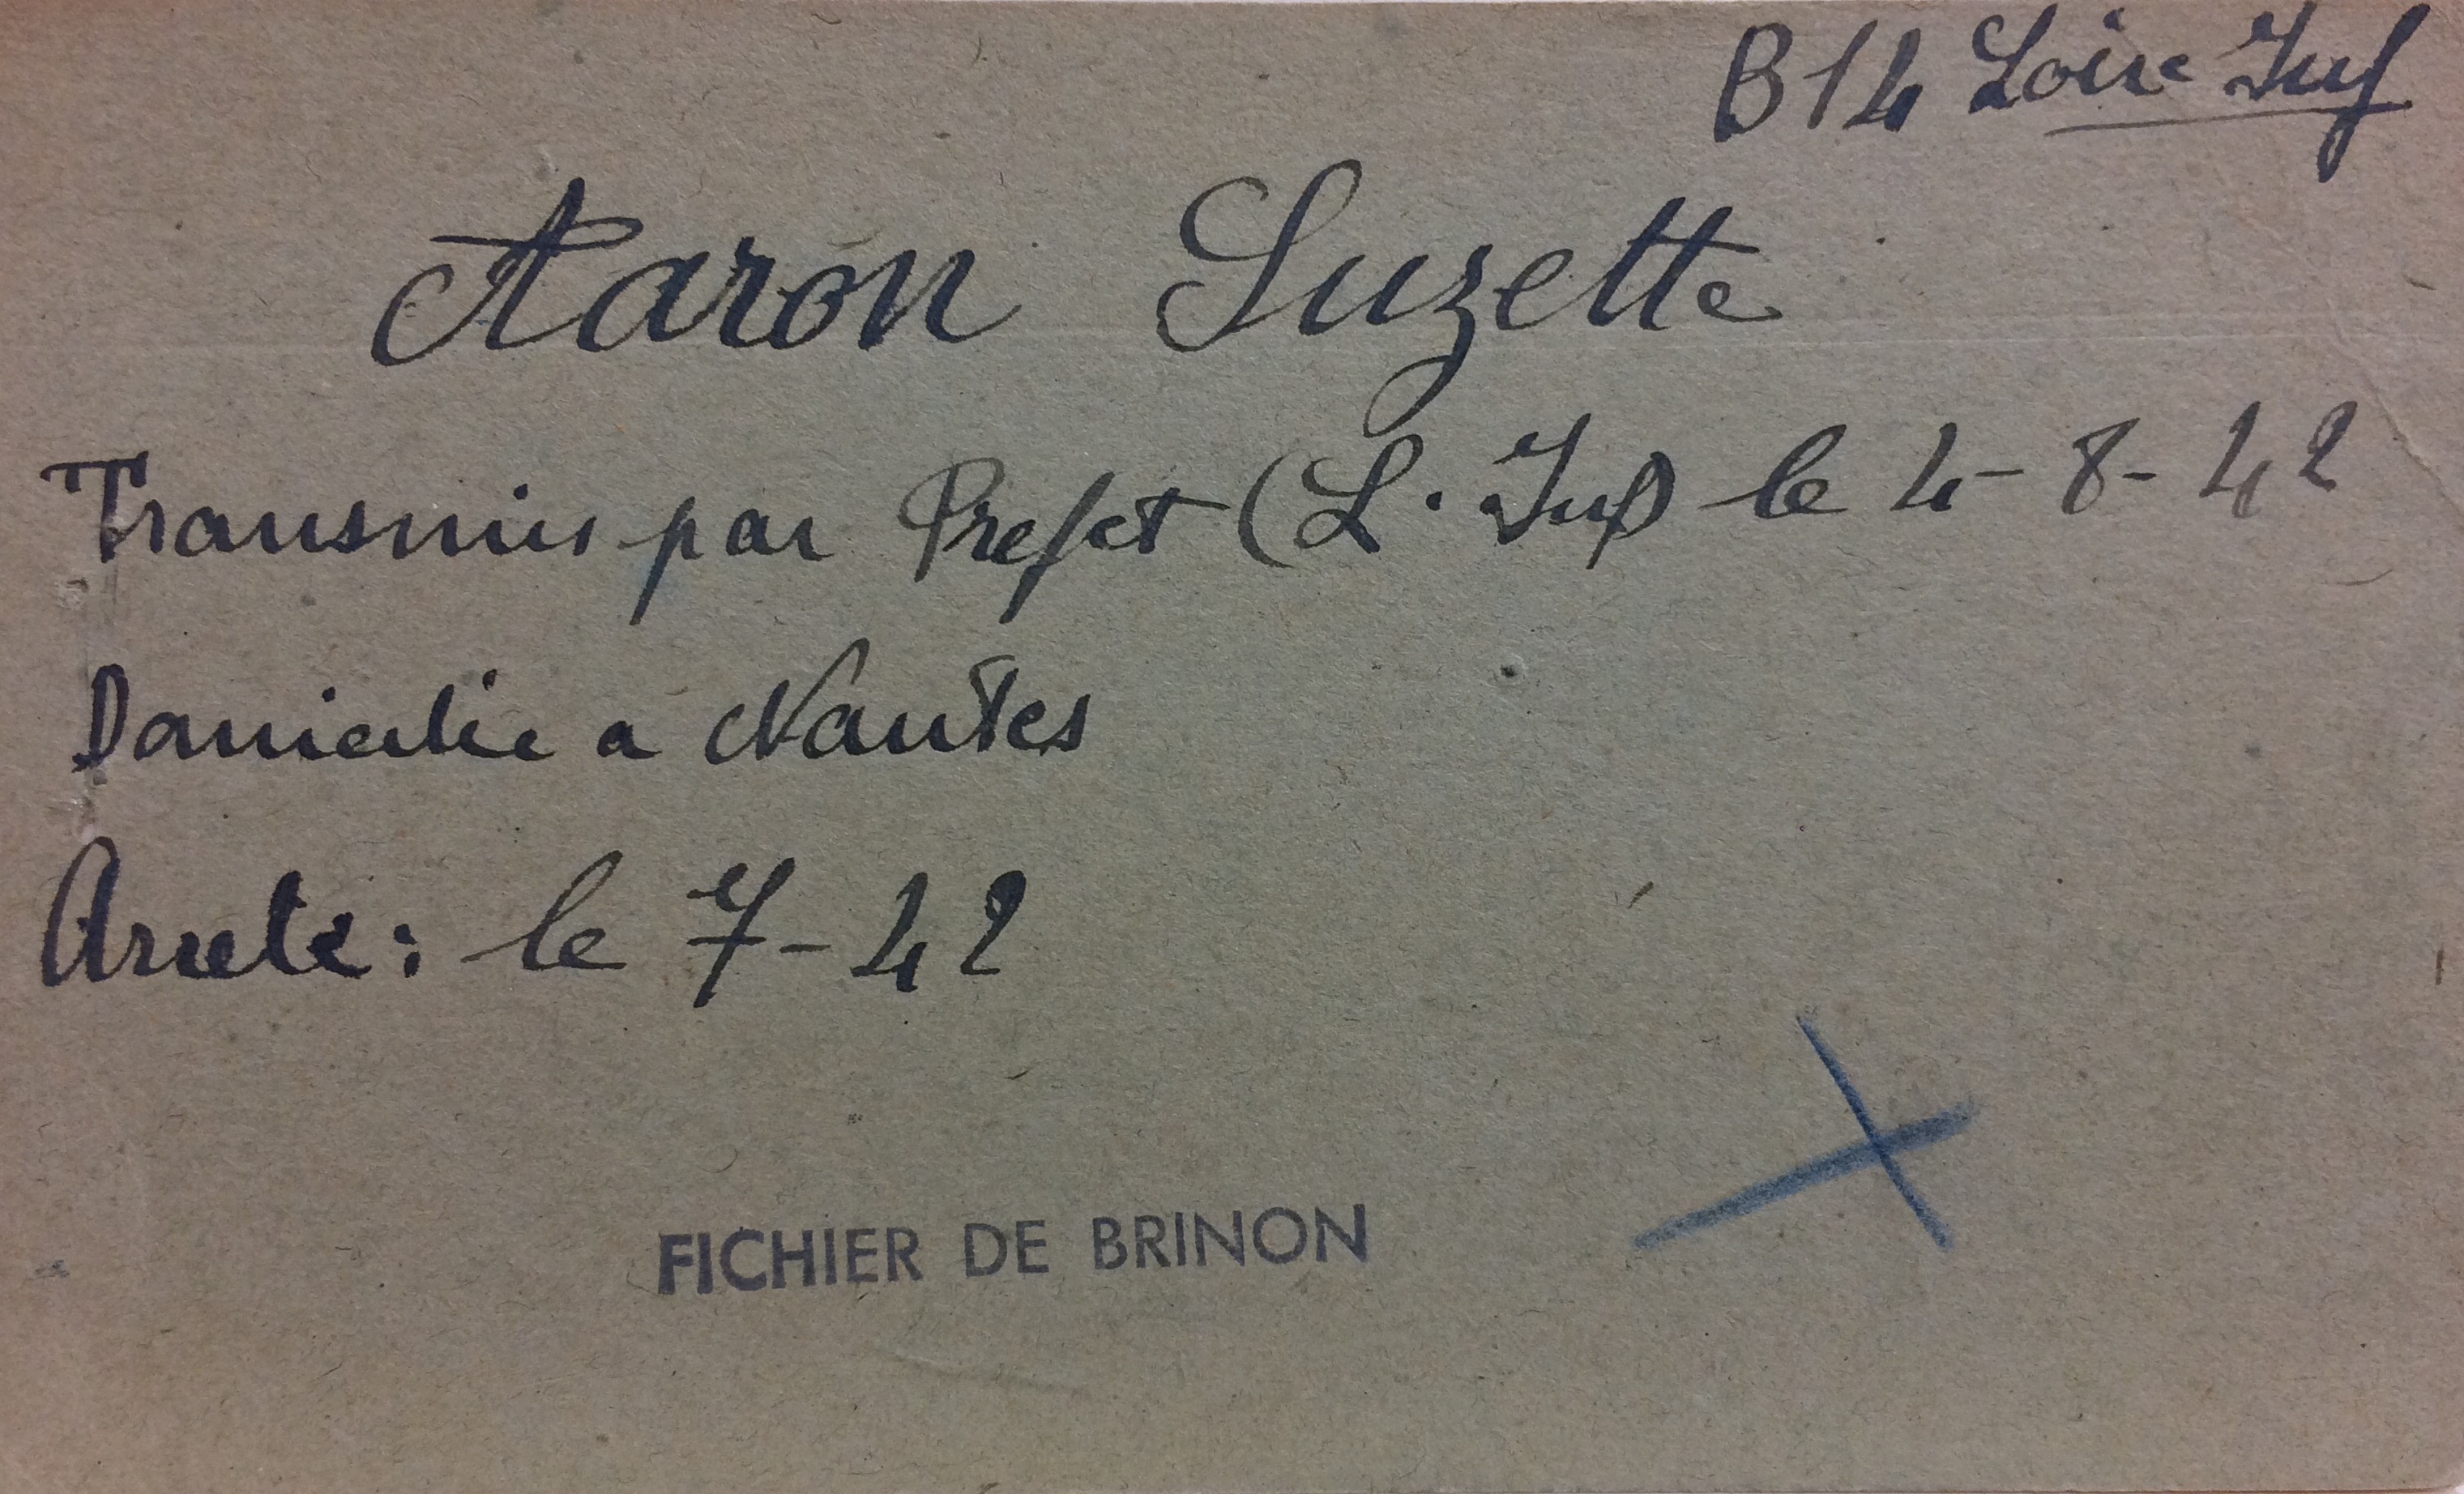 B14 Loire Inf
Aaron Suzette
Transmis par Prefet (L. Inf) le 4-8-42
Domicilie a Nantes
Arrete: le 7-42
FICHIER DE BRINON